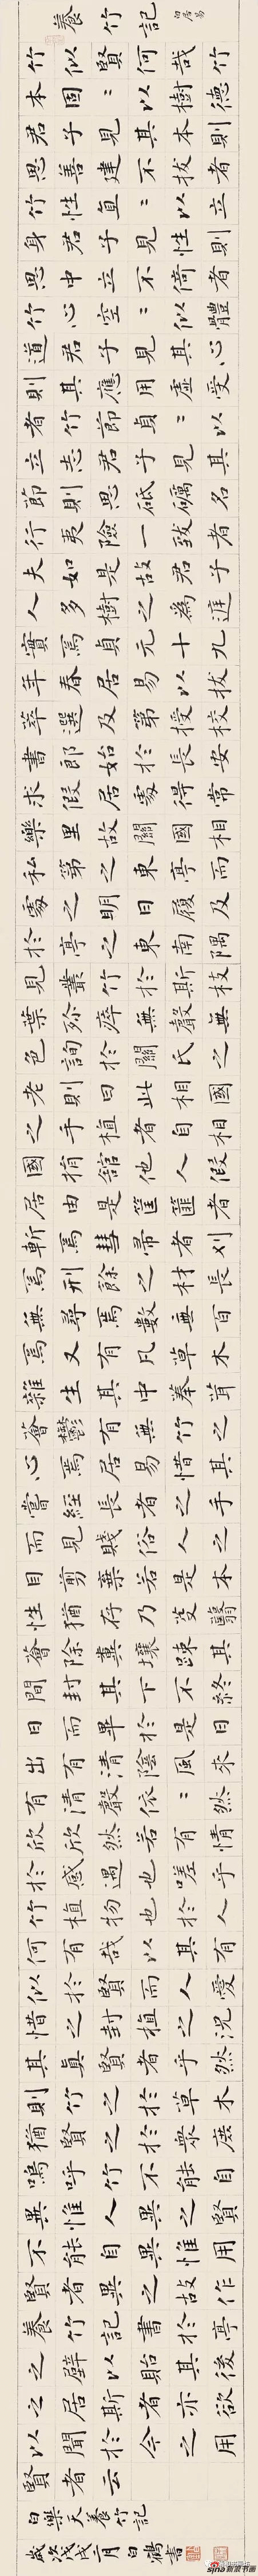 養竹記
白居易
竹似賢何哉竹
本固〻以樹德
君子見其本則
思善建不拔者
竹性直〻以立
身君子見其性則
思中立不倚者
竹心空〻似體
道君子見其心
則思應用虛受
者竹節貞〻以
立志君子見其
節則思砥礪名
行夷險一致者
夫如是故君子
人多樹之為庭
實焉貞元十九
年春居易以拔
萃選及第授校
書郎始於長安
求假居處得常
樂里故關相國
私第之東亭而
處之明日履及
於亭之東南隅
見叢竹於斯枝
葉殄瘁無聲無
色詢於關氏之
老則曰此相國
之手植者自相
國捐舘他人假
居由是筐篚者
斬焉彗帚者刈
焉刑餘之材長
無尋焉數無百
焉又有凡草木
雜生其中菶茸
薈鬱有無竹之
心焉居易惜其
嘗經長者之手
而見賤俗人之
目剪棄若是本
性猶存乃芟翳
薈除糞壤踈其
間封其下不終
日而畢於是日
出有清陰風來
有清聲依〻然
欣〻然若有情
於感遇也嗟乎
竹植物也於人
何有哉以其有
似於賢而人愛
惜之封植之況
其真賢者乎然
則竹之於草木
猶賢之於眾庶
嗚呼竹不能自
異惟人異之賢
不能自異惟用
賢者異之故作
養竹記書於亭
之壁以貽其後
之居者亦欲
以聞於今之用
賢者云
白樂天養竹記
歲次戊戌二月白鶴書
sina 新浪书画